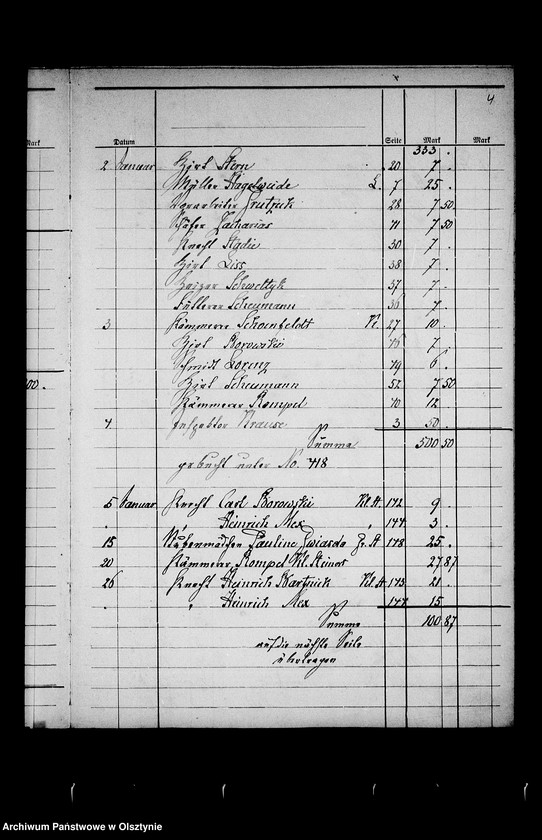 4
Mark Datum Seite Mark Mark
333 .
2 Januar Hirt Stern 20 7 .
Müller Hagelweide L. 7 25 .
Vorarbeiter Grutzick 28 7 50
Schäfer Zacharias 11 7 50
Knecht Stadie 30 7 .
Hirt Liss 38 7 .
Schwelkyk 37 7 .
Fütterer Scheumann 36 7 .
3 Kämmerer Schoenfeldt 27 10 .
Hirt Borowski 76 7 .
Schmidt Lorenz 79 6 .
Hirt Scheumann 52 7 50
Kämmerer Rompel 70 12
00 .
4. Inspektor Krause 3 50 .
Summa 500 50
gebucht unter No. 418
5 Januar Knecht Carl Borowski Kl. St. 142 9 .
. " Heinrich Mex " 144 3 .
15 Stubenmädchen Pauline Gwiasda Gr. St 148 25 .
20 Kämmerer Rompel Kl. Steinort 27 87
26 Knecht Heinrich Bartnick Kl. St. 145 21 .
. " Heinrich Mex 144 15
Summa 100 87
auf die nächste Seite
übertragen
Archiwum Państwowe w Olsztynie